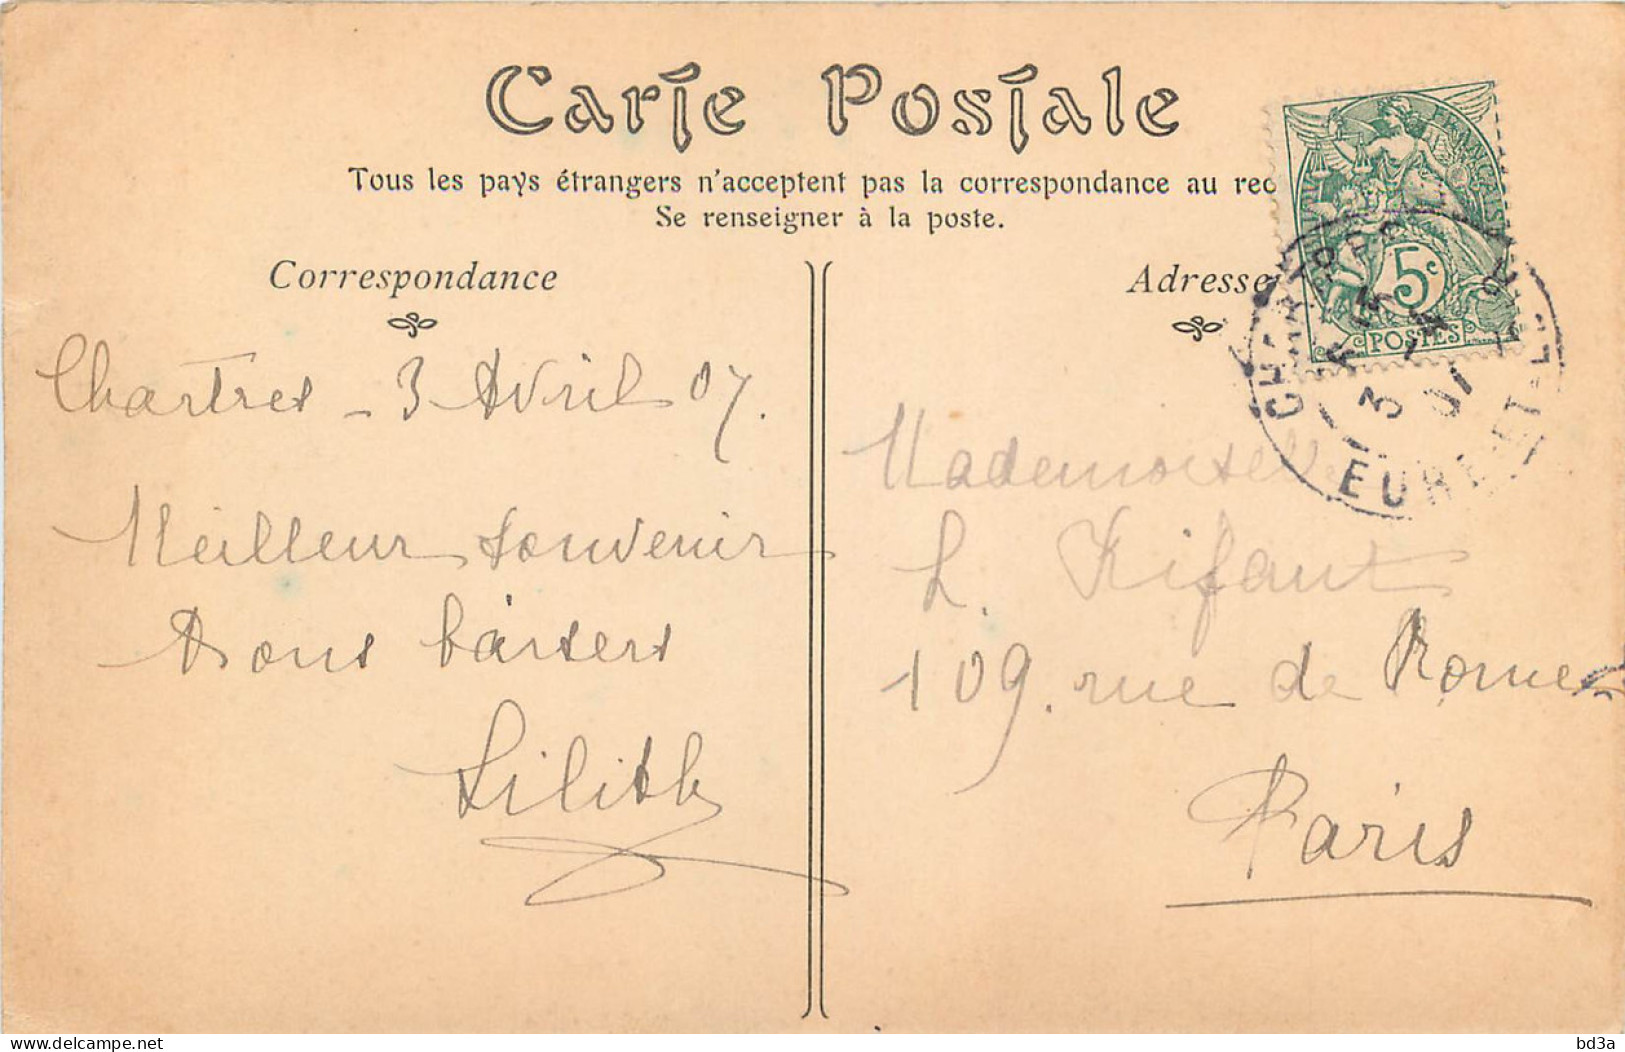 Carte Postale
Tous les pays étrangers n'acceptent pas la correspondance au rec
Se renseigner à la poste.
Correspondance
Adresse
Chartres - 3 Avril 07.
Meilleur souvenir
Bons baisers
Lilith
Mademoiselle
L. Kifaut
109. rue de Rome
Paris
FRANÇAISE
5c
POSTES
CHARTRES
3 - 4
07
EURE-ET-L
delcampe.net
bd3a